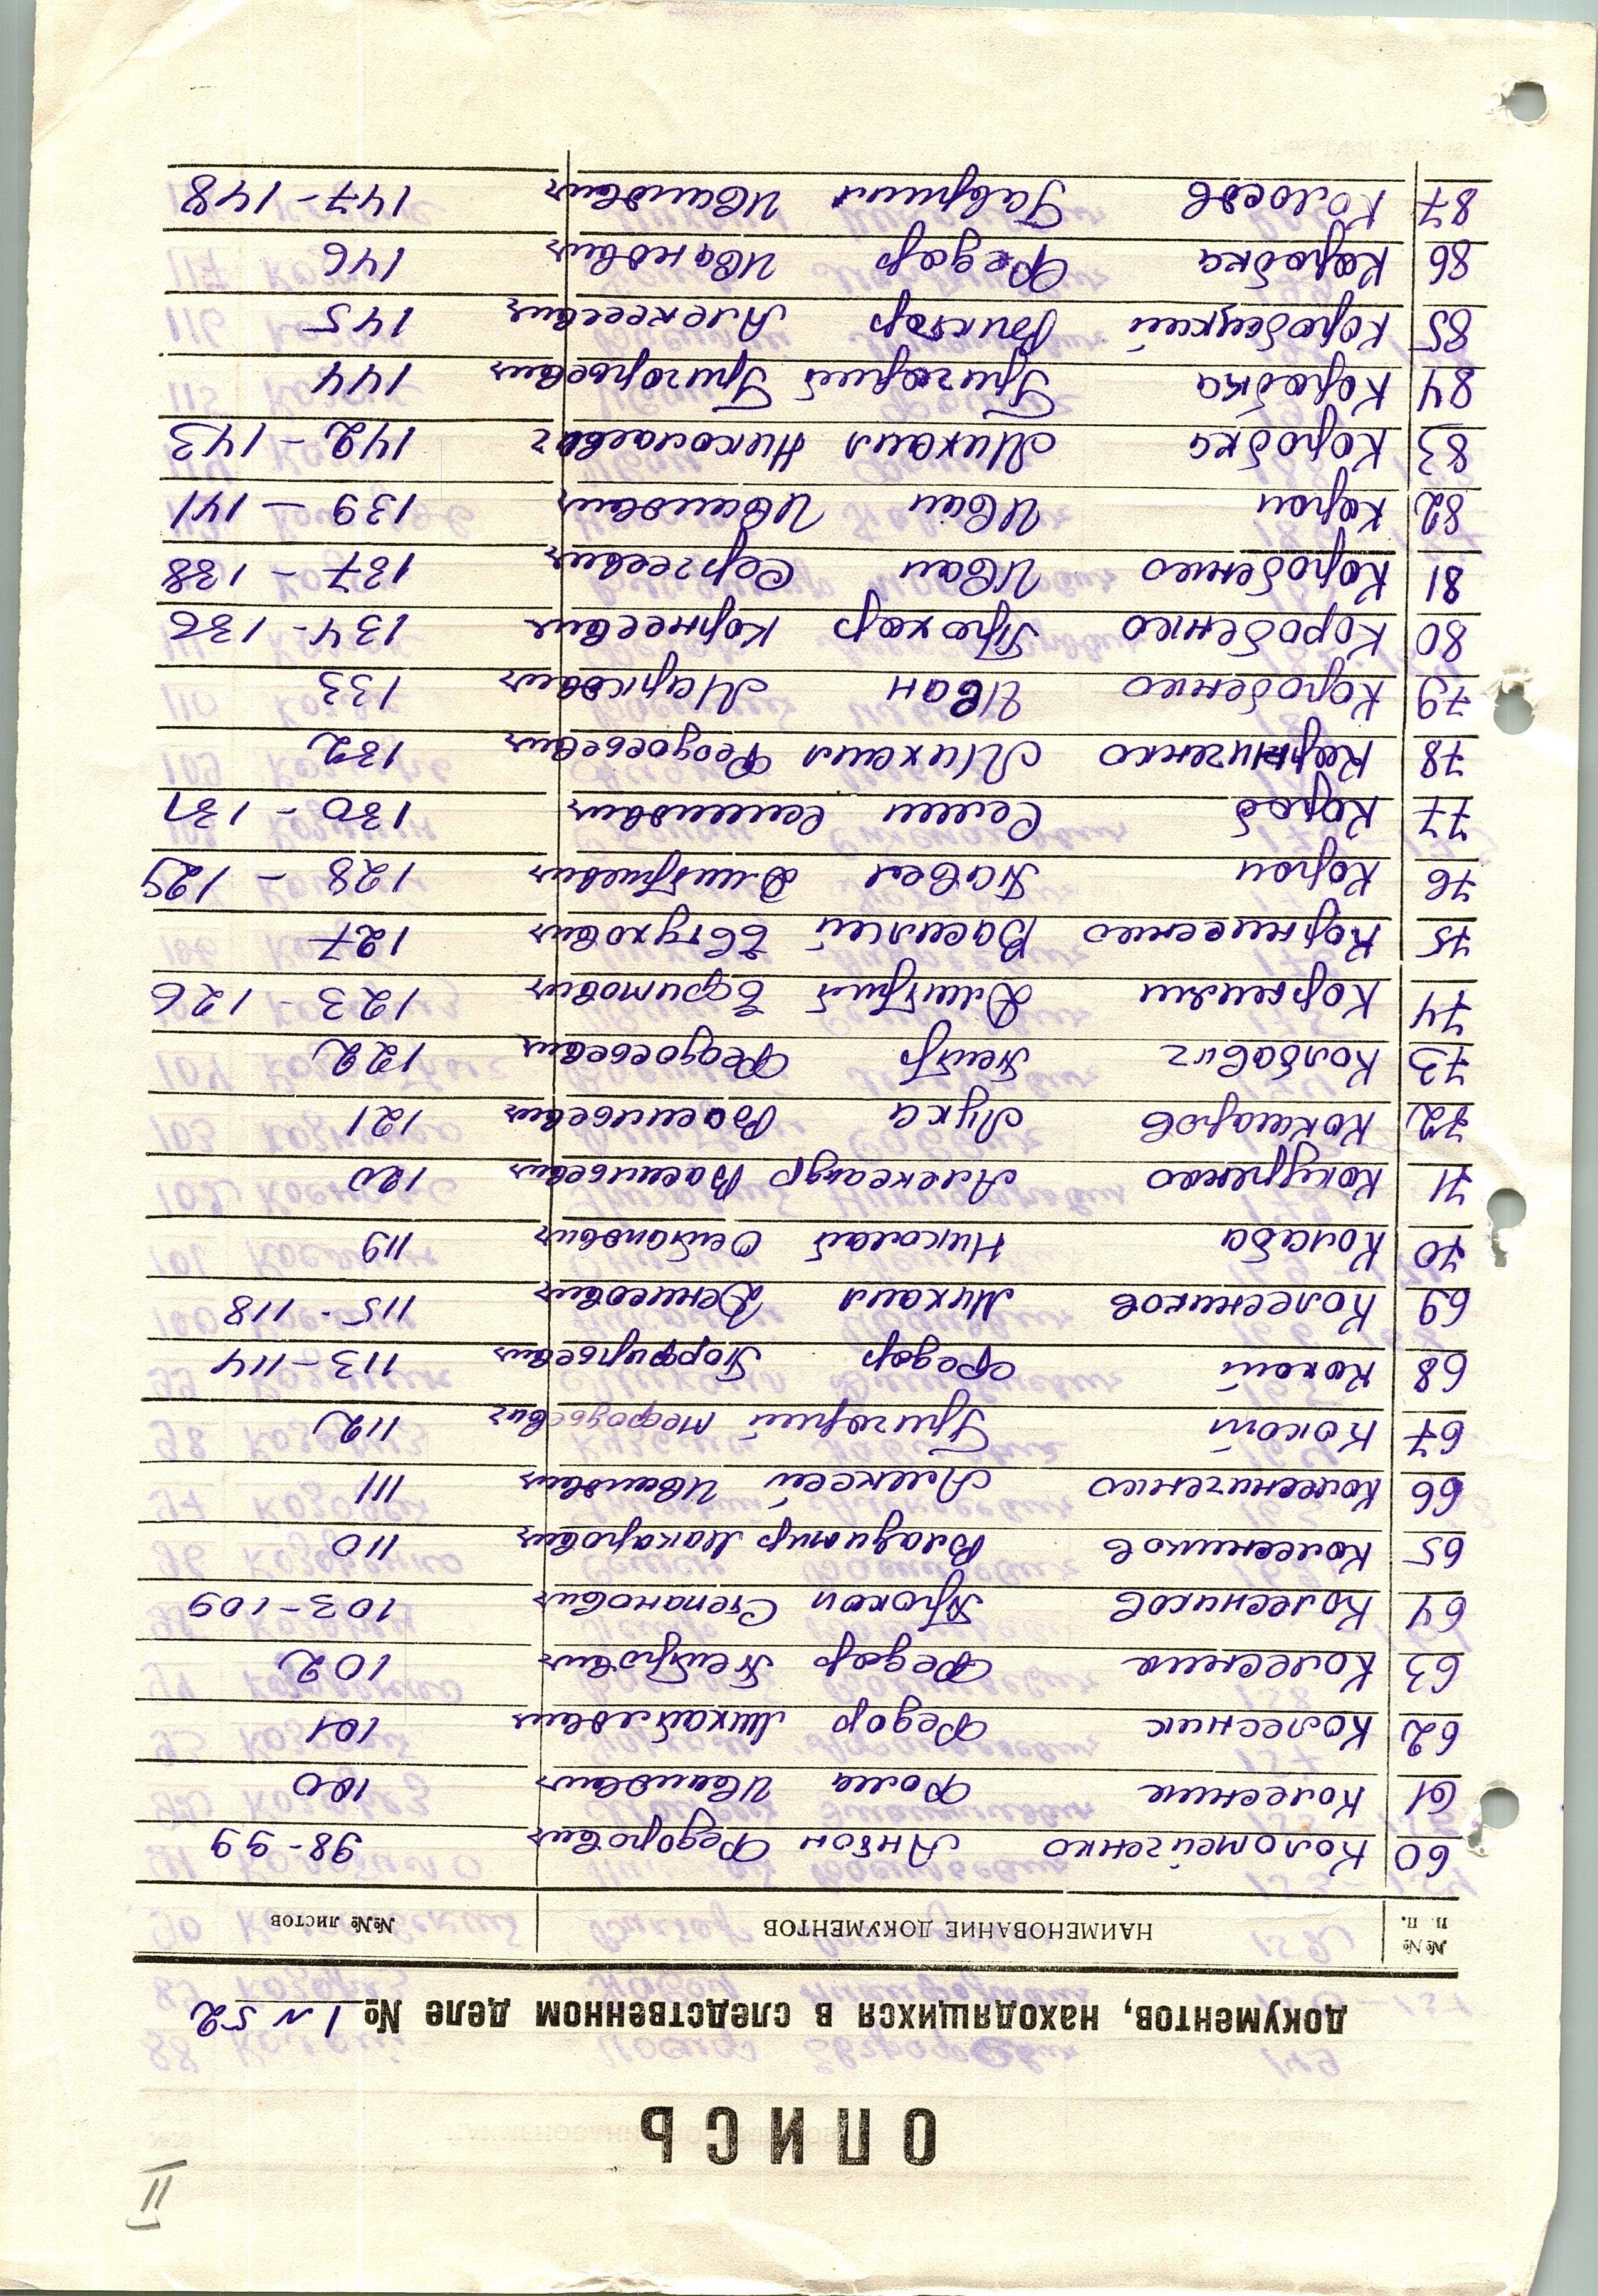 II
ОПИСЬ
документов, находящихся в следственном деле № 1 и 52
№№ п. п. НАИМЕНОВАНИЕ ДОКУМЕНТОВ №№ листов
60 Коломейченко Антон Федорович 98-99
61 Колесник Фома Иванович 100
62 Колесник Федор Михайлович 101
63 Колесник Федор Петрович 102
64 Колесников Прокоп Степанович 103-109
65 Колесников Владимир Макарович 110
66 Колесниченко Алексей Иванович 111
67 Кокот Григорий Мефодьевич 112
68 Федор Порфирьевич 113-114
69 Колесников Михаил Денисович 115-118
70 Колаба Николай Остапович 119
71 Александр Васильевич 120
72 Кокшаров Лука Васильевич 121
73 Колбович Петр Федосьевич 122
74 Дмитрий Ефимович 123-126
75 Корниенко Василий Евтухович 127
76 Короп Павел Дмитриевич 128-129
77 Короб Семен Семенович 130-131
78 Корниченко Михаил Федосьевич 132
79 Коробенко Иван Маркович 133
80 Коробенко Прохор Корнеевич 134-136
81 Коробенко Иван Сергеевич 137-138
82 Короп Иван Иванович 139-141
83 Коробка Михаил Николаевич 142-143
84 Коробка Григорий Григорьевич 144
85 Коробецкий Виктор Алексеевич 145
86 Коробка Федор Иванович 146
87 Колосов Гавриил Иванович 147-148